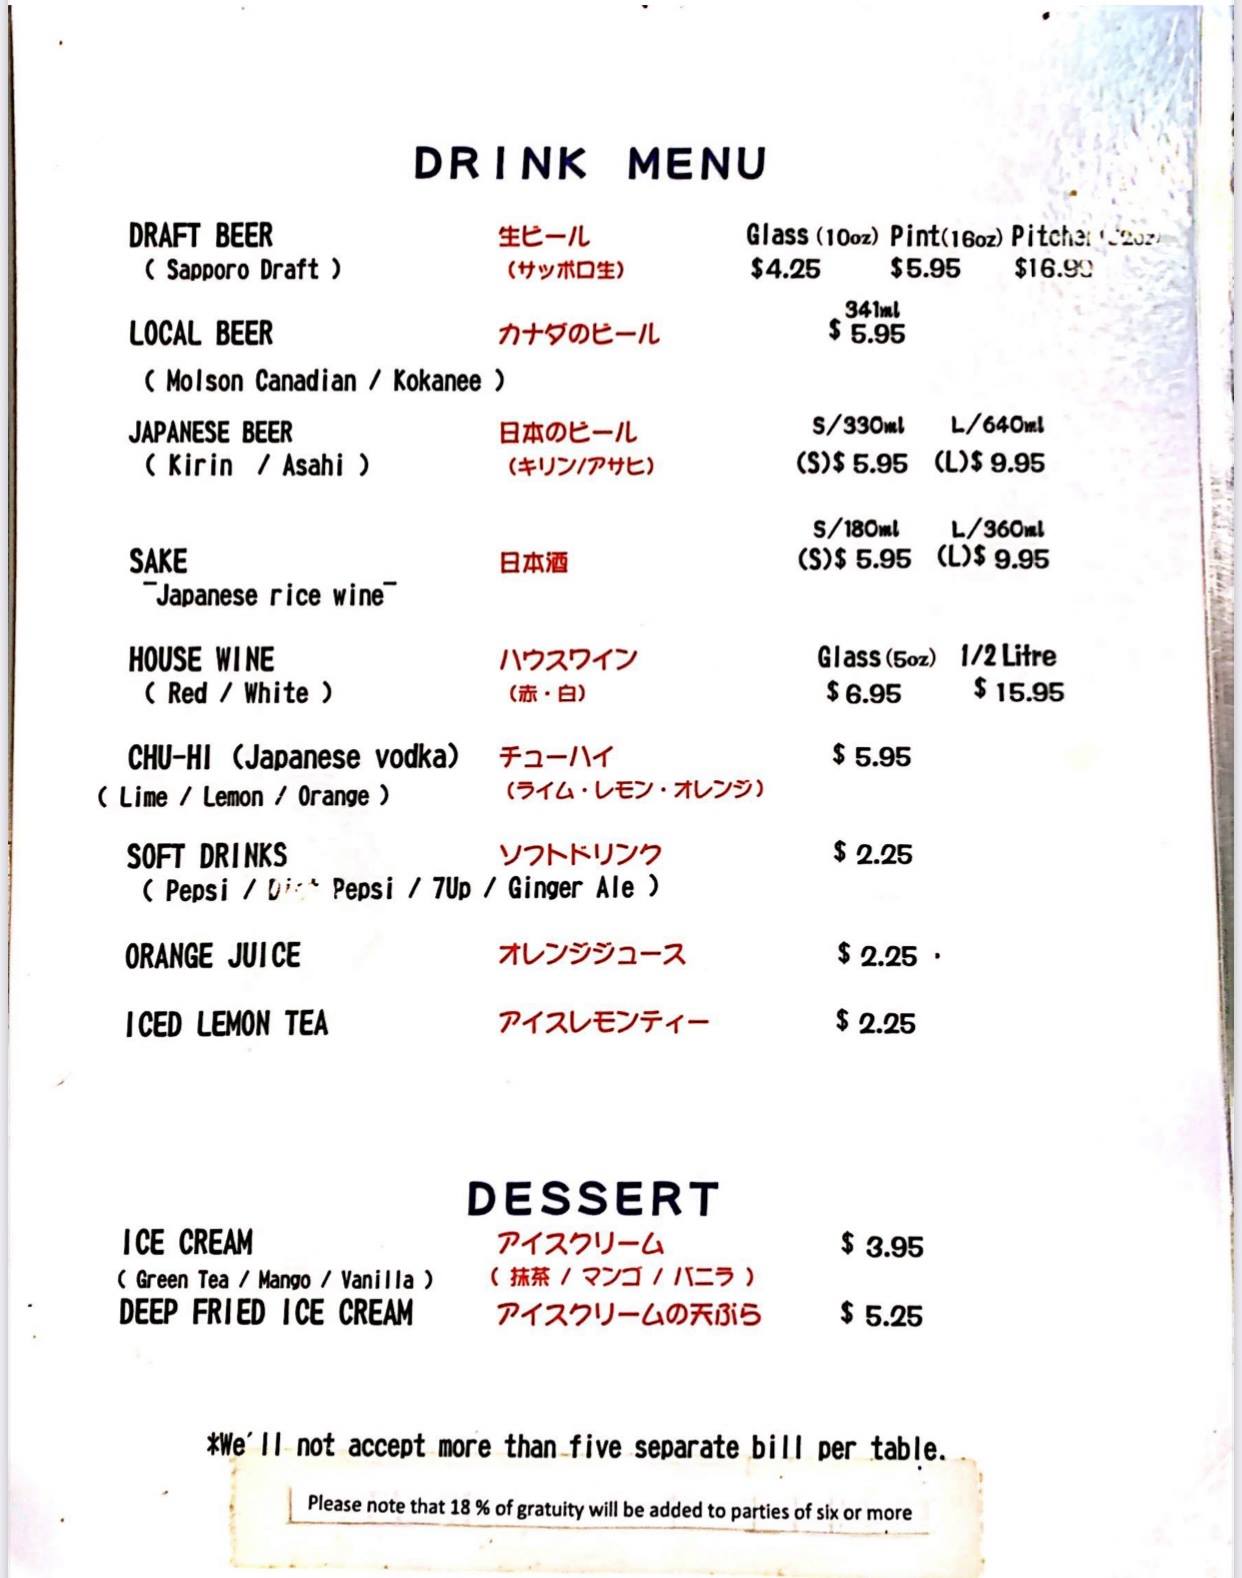 DRINK MENU
DRAFT BEER 生ビール Glass (10oz) Pint(16oz)
( Sapporo Draft ) (サッポロ生) $4.25 $5.95 $16.99
341ml
LOCAL BEER カナダのビール $ 5.95
( Molson Canadian / Kokanee )
S/330ml L/640ml
JAPANESE BEER 日本のビール
( Kirin / Asahi ) (キリン/アサヒ) (S)$ 5.95 (L)$ 9.95
S/180ml L/360ml
SAKE 日本酒 (S)$ 5.95 (L)$ 9.95
‾Japanese rice wine‾
HOUSE WINE ハウスワイン Glass (5oz) 1/2 Litre
( Red / White ) (赤・白) $ 6.95 $ 15.95
CHU-HI (Japanese vodka) チューハイ $ 5.95
( Lime / Lemon / Orange ) (ライム・レモン・オレンジ)
SOFT DRINKS ソフトドリンク $ 2.25
( Pepsi / Pepsi / 7Up / Ginger Ale )
ORANGE JUICE オレンジジュース $ 2.25
ICED LEMON TEA アイスレモンティー $ 2.25
DESSERT
ICE CREAM アイスクリーム $ 3.95
( Green Tea / Mango / Vanilla ) ( 抹茶 / マンゴ / バニラ )
DEEP FRIED ICE CREAM アイスクリームの天ぷら $ 5.25
*We'll not accept more than five separate bill per table.
Please note that 18 % of gratuity will be added to parties of six or more